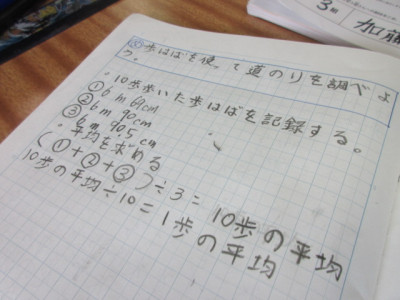 3組
加藤
歩はばを使って道のりを調べよ
う。
・10歩歩いた歩はばを記録する。
① 6m 69cm
② 6m 90cm
③ 6m 90.5cm
・平均を求める
(①+②+③)÷3=10歩の平均
10歩の平均÷10=1歩の平均